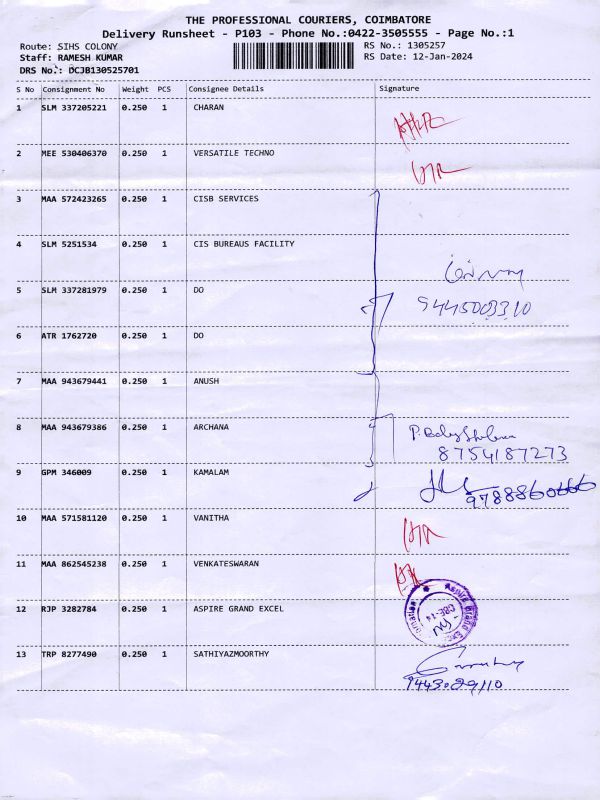 THE PROFESSIONAL COURIERS, COIMBATORE
Delivery Runsheet - P103 - Phone No.:0422-3505555 - Page No.:1
Route: SIHS COLONY RS No.: 1305257
Staff: RAMESH KUMAR RS Date: 12-Jan-2024
DRS No.: DCJB130525701
S No Consignment No Weight PCS Consignee Details Signature
1 SLM 337205221 0.250 1 CHARAN
2 MEE 530406370 0.250 1 VERSATILE TECHNO
3 MAA 572423265 0.250 1 CISB SERVICES
4 SLM 5251534 0.250 1 CIS BUREAUS FACILITY
5 SLM 337281979 0.250 1 DO
9445003310
6 ATR 1762720 0.250 1 DO
7 MAA 943679441 0.250 1 ANUSH
8 MAA 943679386 0.250 1 ARCHANA
8754187273
9 GPM 346009 0.250 1 KAMALAM
10 MAA 571581120 0.250 1 VANITHA
11 MAA 862545238 0.250 1 VENKATESWARAN
12 RJP 3282784 0.250 1 ASPIRE GRAND EXCEL
13 TRP 8277490 0.250 1 SATHIYAZMOORTHY